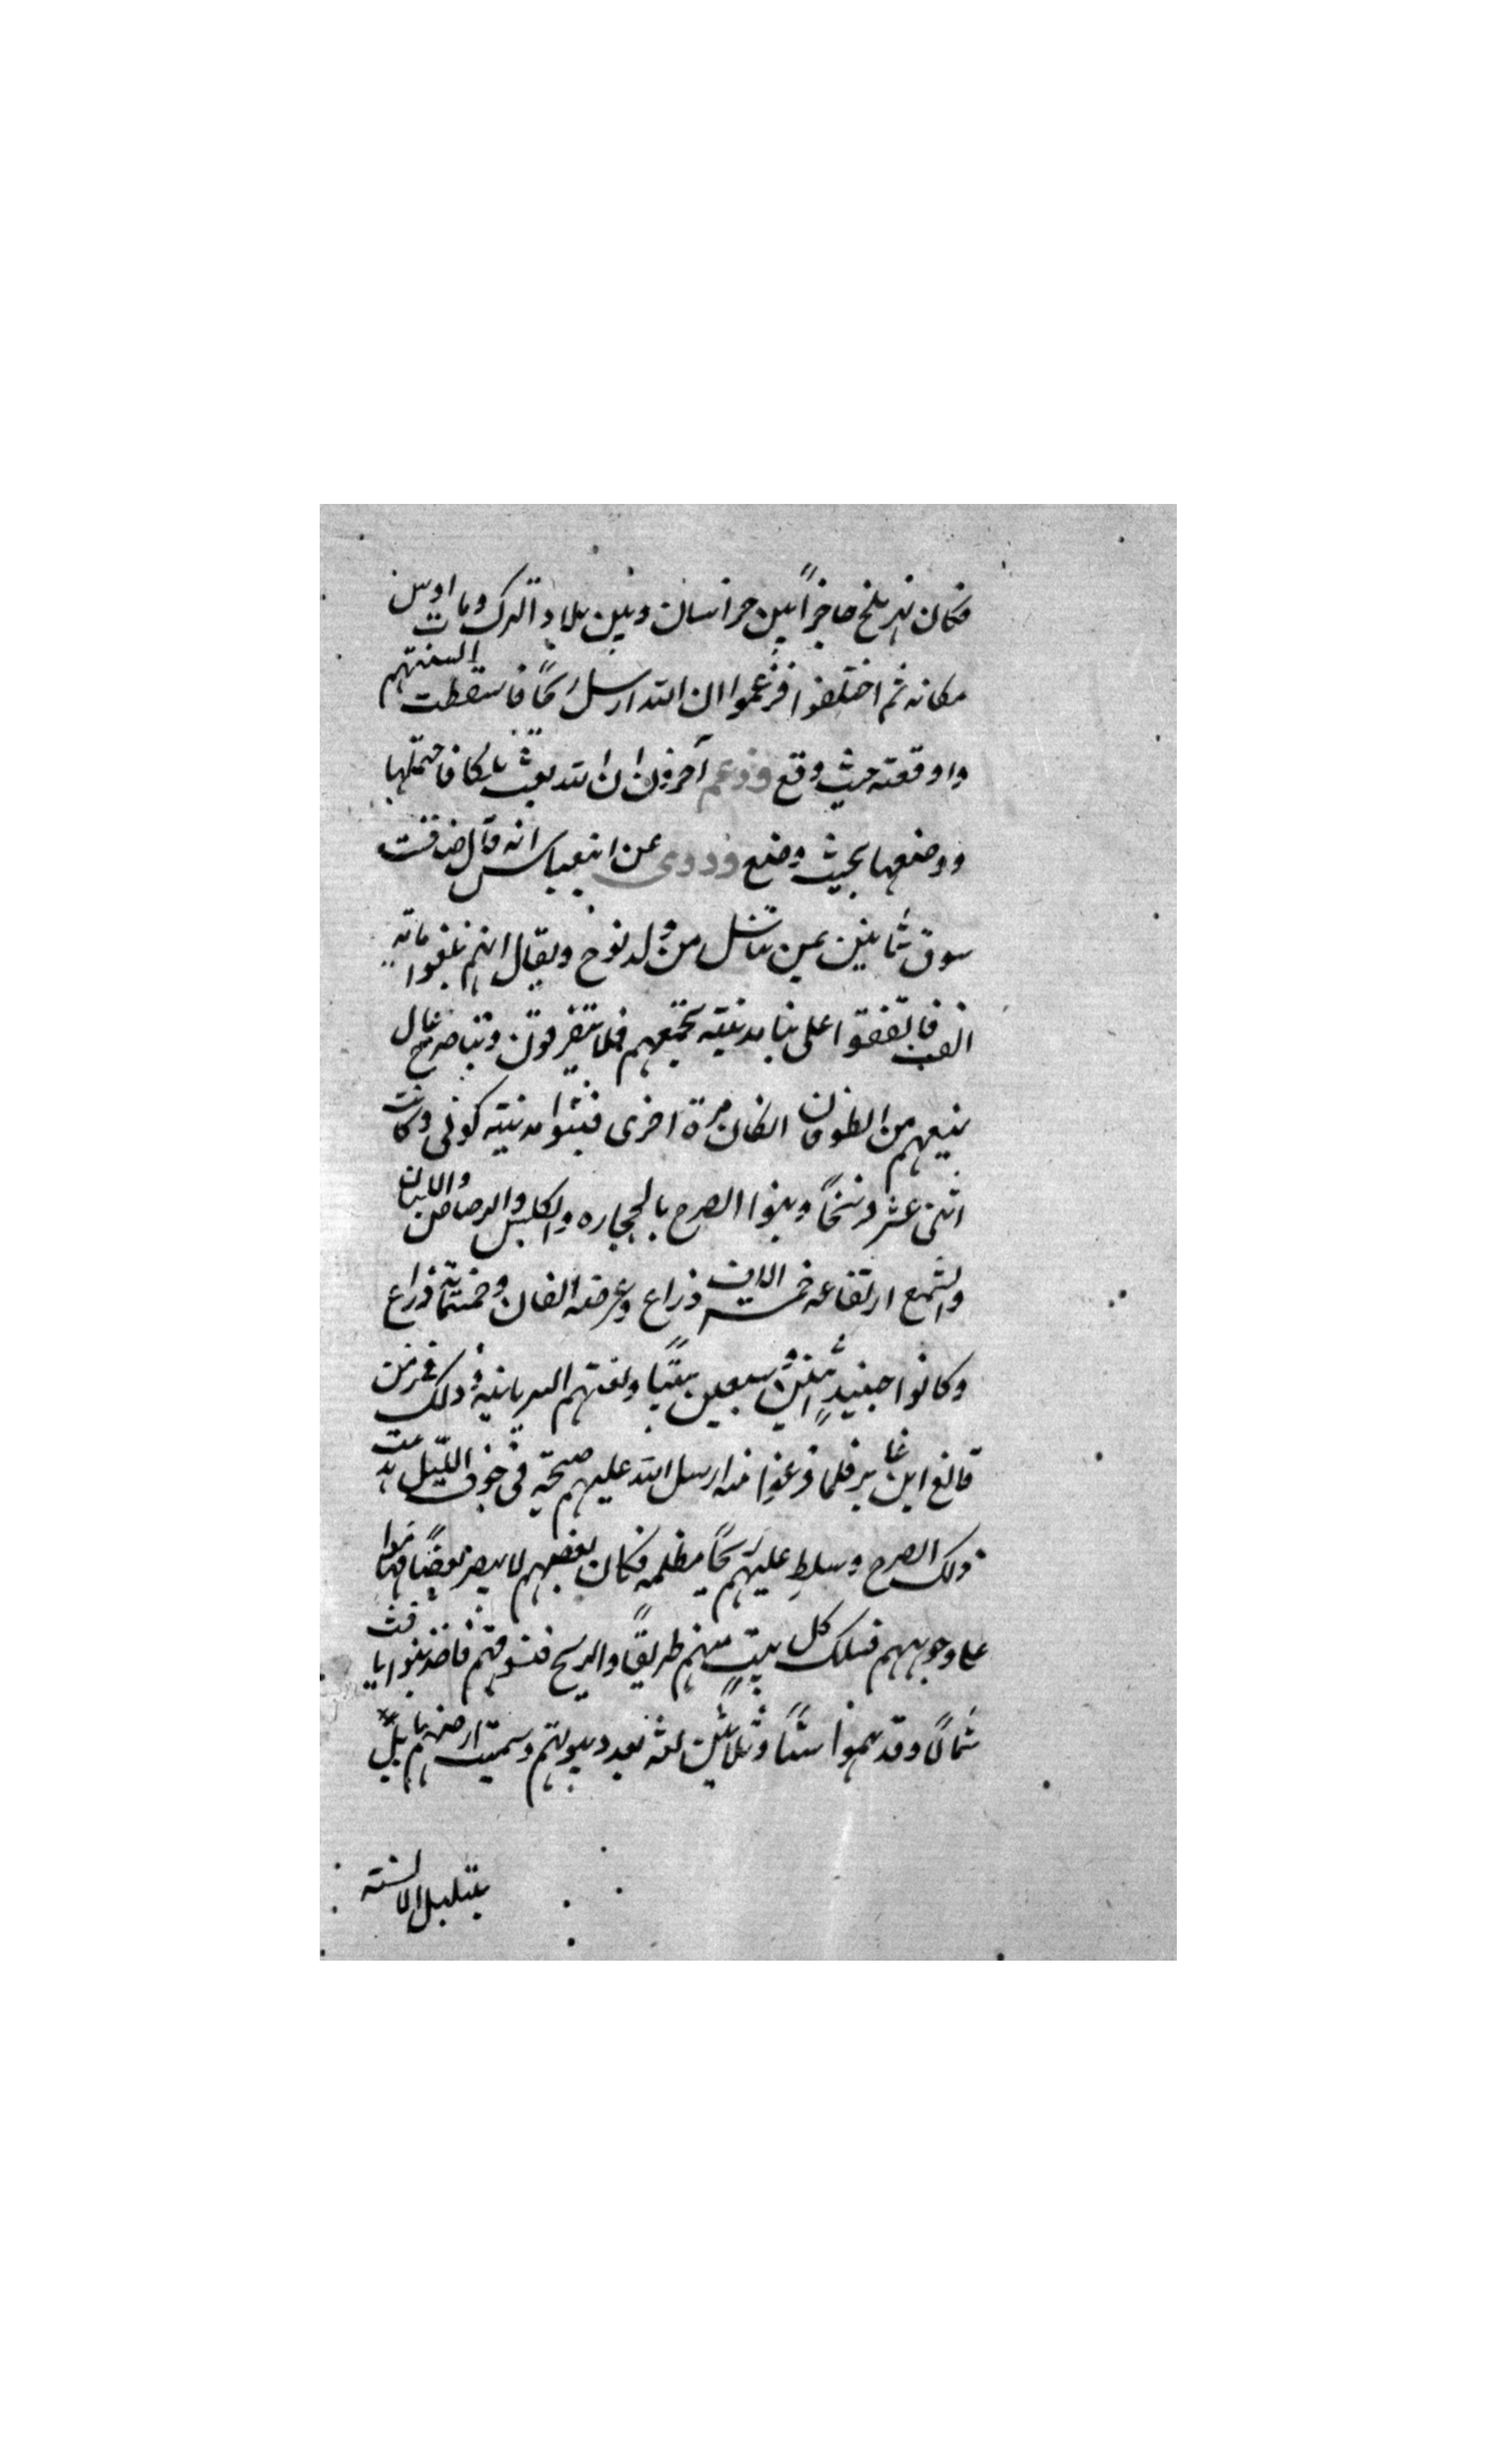 فكان نهر بلخ حاجزاً بين خراسان وبين بلاد الترك وما اوس
مكانه ثم اختلفوا فزعموا ان الله ارسل ريحًا فاسقطت السنتهم
واوقعته حيث وقع وزعم آخرون ان الله بعث ملكا فاحتملها
ووضعها بحيث وضع وروى عن ابن عباس انه قال ضاقت
سوق ثمانين بمن تناسل من ولد نوح ويقال انهم بلغوا ماته
الف فاتفقوا على بنا مدينته تجمعهم فلا يتفرقون وتبنا صرح عال
يمنعهم من الطوفان ان كان مرة اخرى فبنوا مدينته كوثى وكانت
اثنى عشر فرسخاً وبنوا الصرح بالحجاره والكلس والرصاص واللبان
والشمع ارتفاعه خمسة الاف ذراع وعرضه الفان وخمسماية ذراع
وكانوا حينيدٍ اثنين وسبعين بيتًا ولغتهم السريانيه وذلك في زمن
فالغ ابن عابر فلما فرغوا منه ارسل الله عليهم صيحته فى جوف الليل هدت
ذلك الصرح وسلط عليهم ريحًا مظلمه فكان بعضهم لا يبصر بعضًا فهاموا
على وجوههم فسلك كل بيتٍ منهم طريقًا والريح فتسوقهم فاخذ بنوا يافث
شمالًا وقد هموا ستًا وثلاثين لغه بعدد بيوتهم وسميت ارضهم بابلً
بتبلبل الالسنته